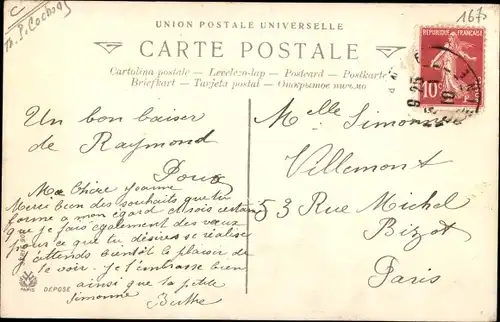 C
1670
UNION POSTALE UNIVERSELLE
CARTE POSTALE
Cartolina postale — Levelezo-lap — Postcard — Postkarte
Briefkart — Tarjeta postal — Открытое письмо
REPUBLIQUE FRANÇAISE
10c
Un bon baiser
de Raymond
Doux
Ma Chère Jeanne
Merci bien des souhaits que tu
forme a mon égard et sois certaine
que je fais également des vœux
pour ce que tu désires se réalise
J'attends bientôt le plaisir de
te voir. Je t'embrasse bien
ainsi que ta petite
Simonne Berthe
Melle Simonne
Villemont
53 Rue Michel
Bizot
Paris
PARIS
DEPOSE